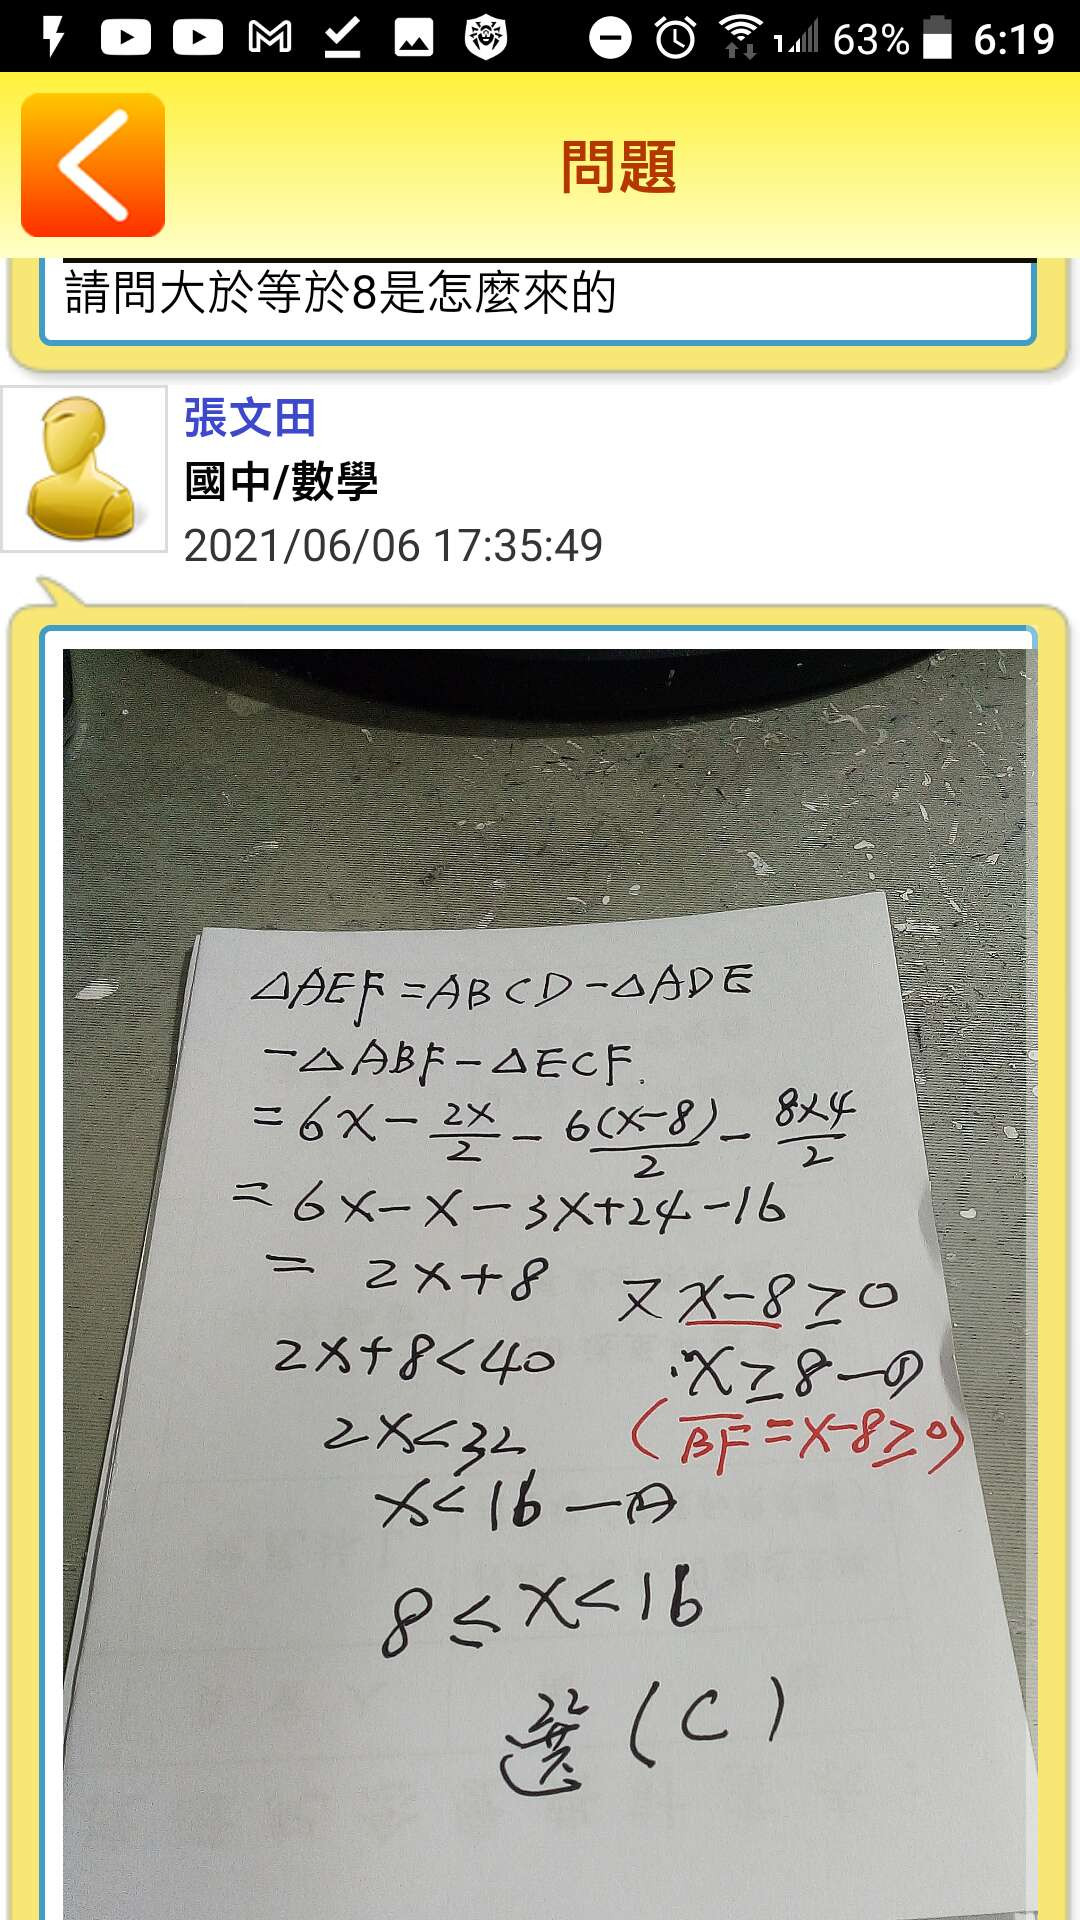 63% 6:19
問題
請問大於等於8是怎麼來的
張文田
國中/數學
2021/06/06 17:35:49
△AEF=ABCD-△ADE
-△ABF-△ECF.
=6x-2x/2-6(x-8)/2-8×4/2
=6x-x-3x+24-16
= 2x+8 又x-8≥0
2x+8<40 x≥8-①
2x<32 (BF=x-8≥0)
x<16-A
8≤x<16
選(C)